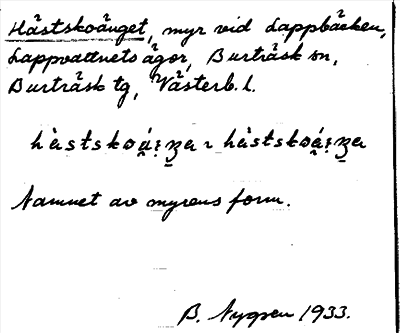 Hästskoänget, myr vid Lappbäcken,
Lappvattnets ägor, Burträsk sn,
Burträsk tg, Västerb. l.
Namnet av myrens form.
B. Nygren 1933.